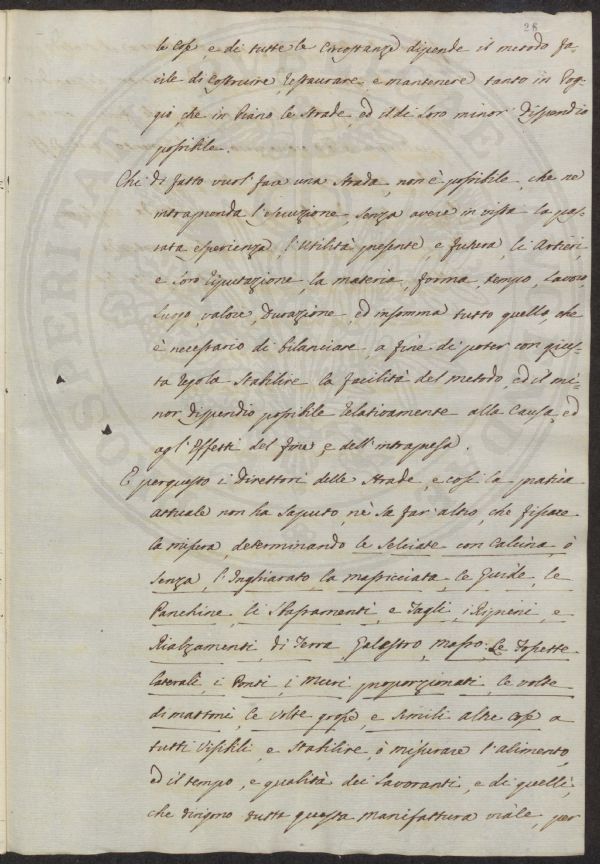 28
le Cose, e di tutte le Circostanze dipende il metodo fa-
cile di Costruire, restaurare, e mantenere tanto in Pog-
gio, che in Piano le strade, ed il di loro minor Dispendio
possibile.
Chi di fatto vuol fare una strada, non è possibile, che ne
intraprenda l'esecuzione, senza avere in vista la pas-
sata esperienza, l'Utilità presente, e futura, li Artieri,
e loro reputazione, la materia, forma, tempo, lavoro,
luogo, valore, Durazione, ed insomma tutto quello, che
è necessario di bilanciare, a fine di poter con gius-
ta regola stabilire la facilità del metodo, ed il mi-
nor Dispendio possibile relativamente alla Causa, ed
agl'Effetti del fine, e dell'intrapresa.
E perquesto i Direttori delle Strade, e così la pratica
attuale non ha saputo, nè sa far altro, che fissare
la misura, determinando le Selciate con Calcina, ò
senza, l'Inghiarato, la massicciata, le Guide, le
Panchine, li Stassamenti, e Tagli, i Ripieni, e
Rialzamenti di Terra Galestro, masso: Le Fossette
laterali, i Ponti, i muri proporzionati, le volte
di mattoni le volte grosse, e simili altre Cose a
tutti Visibili, e stabilire, ò misurare l'alimento,
ed il tempo, e qualità dei lavoranti, e di quelli,
che dirigono tutta questa manifattura viale, per